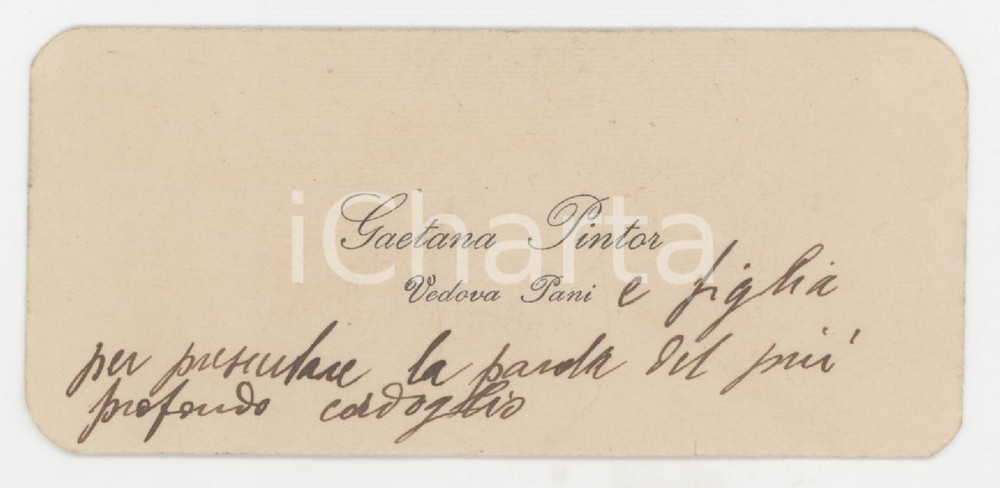 iCharta
Gaetana Pintor
Vedova Pani e figlia
per presentare la parola del più
profondo cordoglio